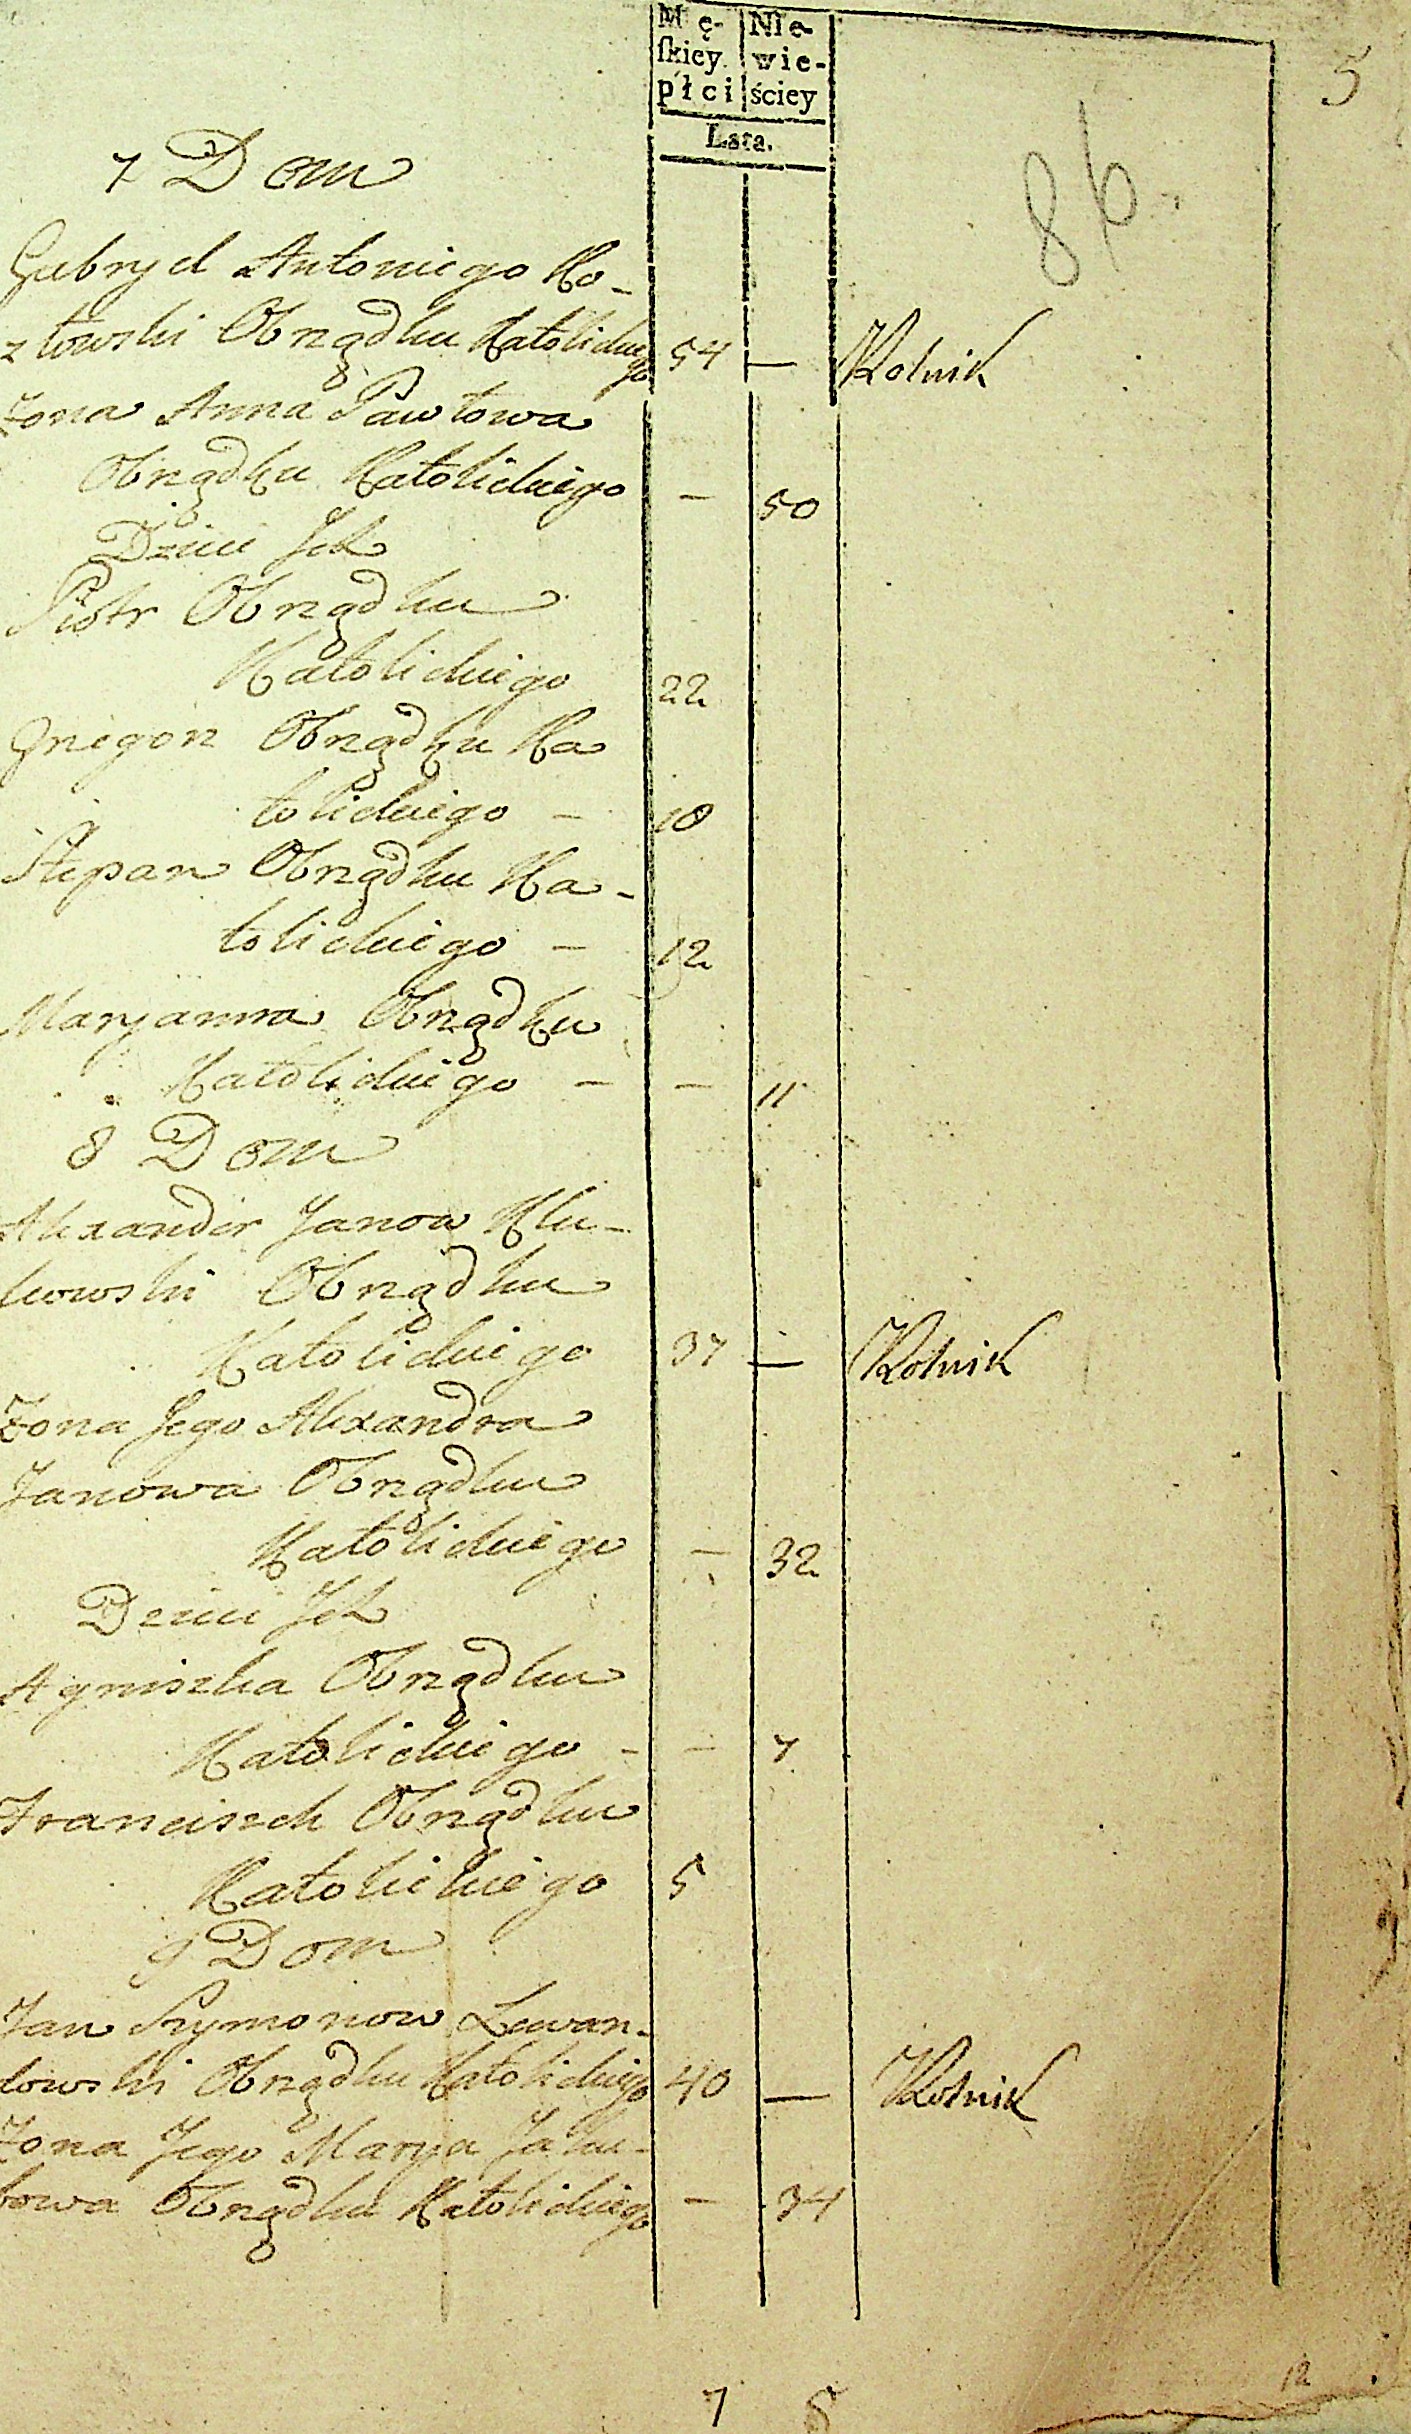 Mę- Nie-
skiey wie-
płci ściey
Lata.
5
86.
7 Dom
Gabryel Antoniego Ko-
złowski Obrządku Katolickiego 54 — Rolnik
Zona Anna Pawłowa
Obrządku Katolickiego — 50
Dzieci Ich
Piotr Obrządku
Katolickiego 22
Gregorz Obrządku Ka
tolickiego — 18
Stepan Obrządku Ka-
tolickiego — 12
Maryanna Obrządku
Katolickiego — — 11
8 Dom
Alexander Janow Klu-
kowski Obrządku
Katolickiego 37 — Rolnik
Zona Jego Alexandra
Janowa Obrządku
Katolickiego — 32
Dzieci Ich
Agniszka Obrządku
Katolickiego — — 7
Franciszek Obrządku
Katolickiego 5
9 Dom
Jan Szymonow Lewan-
dowski Obrządku Katolickiego 40 — Rolnik
Zona Jego Marya Jaku-
bowa Obrządku Katolickiego — 34
7 5
12